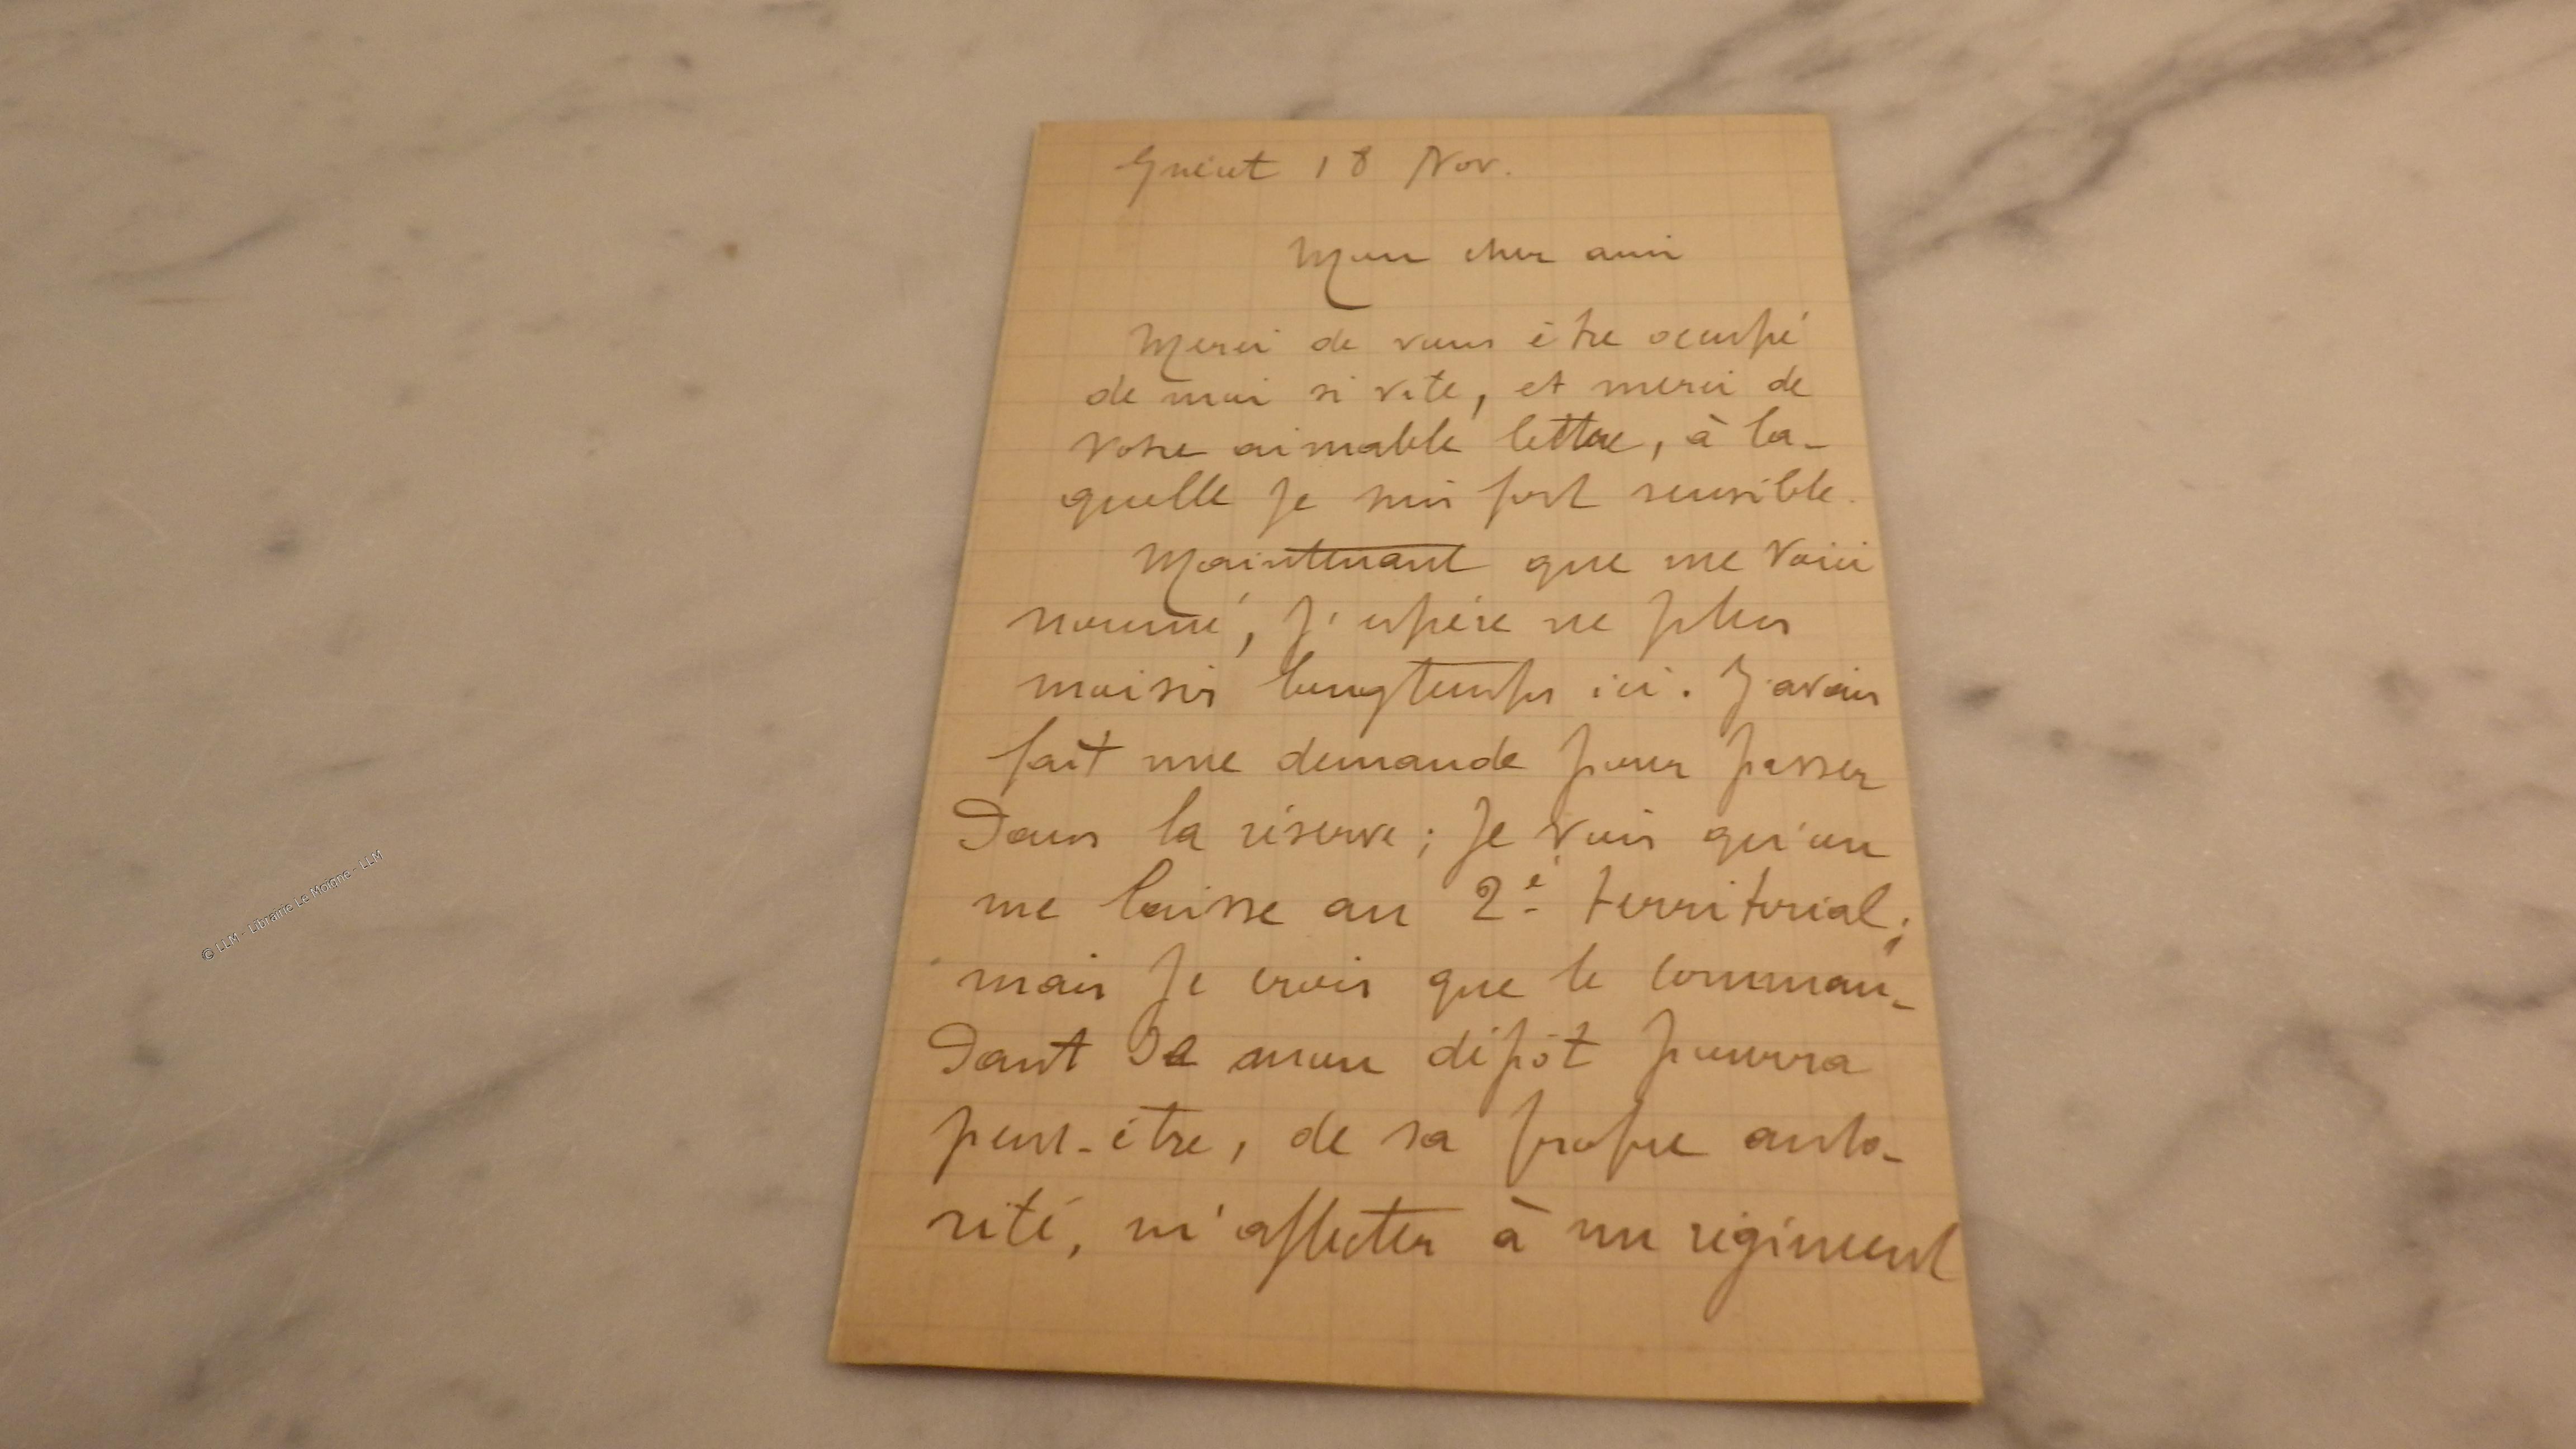 Guéret 18 Nov.
Mon cher ami
Merci de vous être occupé
de moi si vite, et merci de
votre aimable lettre, à la-
quelle je suis fort sensible.
Maintenant que me voici
nommé, j'espère ne plus
moisir longtemps ici. J'avais
fait une demande pour passer
dans la réserve ; je vois qu'on
me laisse au 2e territorial ;
mais je crois que le comman-
dant de mon dépôt pourra
peut-être, de sa propre auto-
rité, m'affecter à un régiment
© LLM - Librairie Le Moigne - LLM